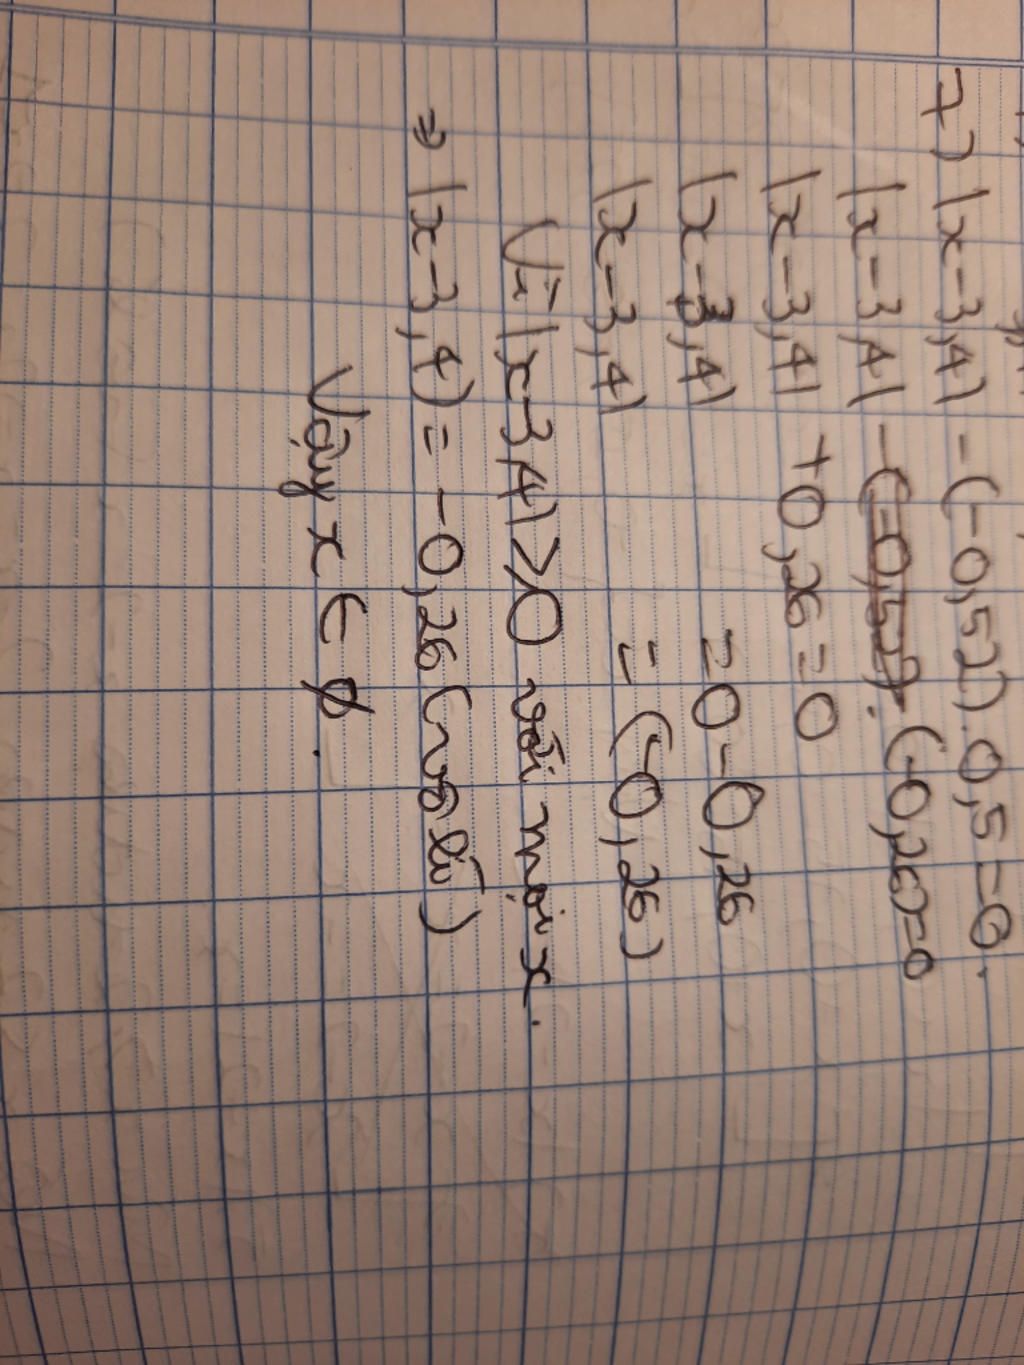 7) |x-3,4| - (-0,52).0,5=0.
|x-3,4| - (-0,26)=0
|x-3,4| +0,26=0
|x-3,4| =0-0,26
|x-3,4| =(-0,26)
Vì |x-3,4|≥0 với mọi x.
⇒ |x-3,4|=-0,26 (vô lí)
Vậy x ∈ ∅.